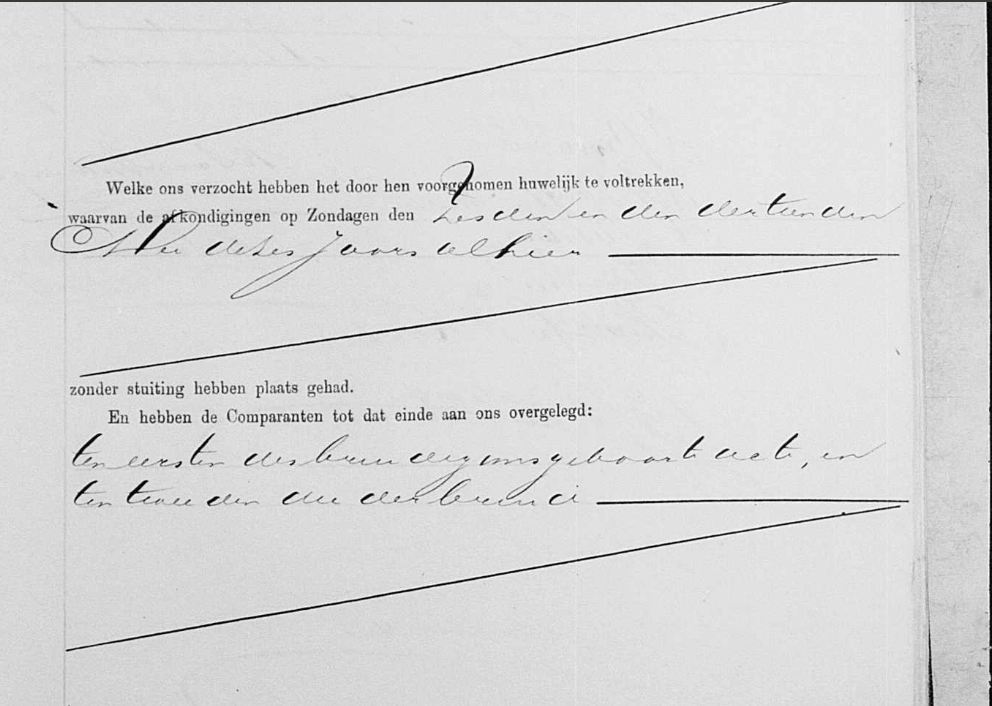 Welke ons verzocht hebben het door hen voorgenomen huwelijk te voltrekken,
waarvan de afkondigingen op Zondagen den Zesden en den dertienden
Mei dezes jaars alhier
zonder stuiting hebben plaats gehad.
En hebben de Comparanten tot dat einde aan ons overgelegd:
ten eersten des bruidegoms geboorte acte, en
ten tweeden die der bruid